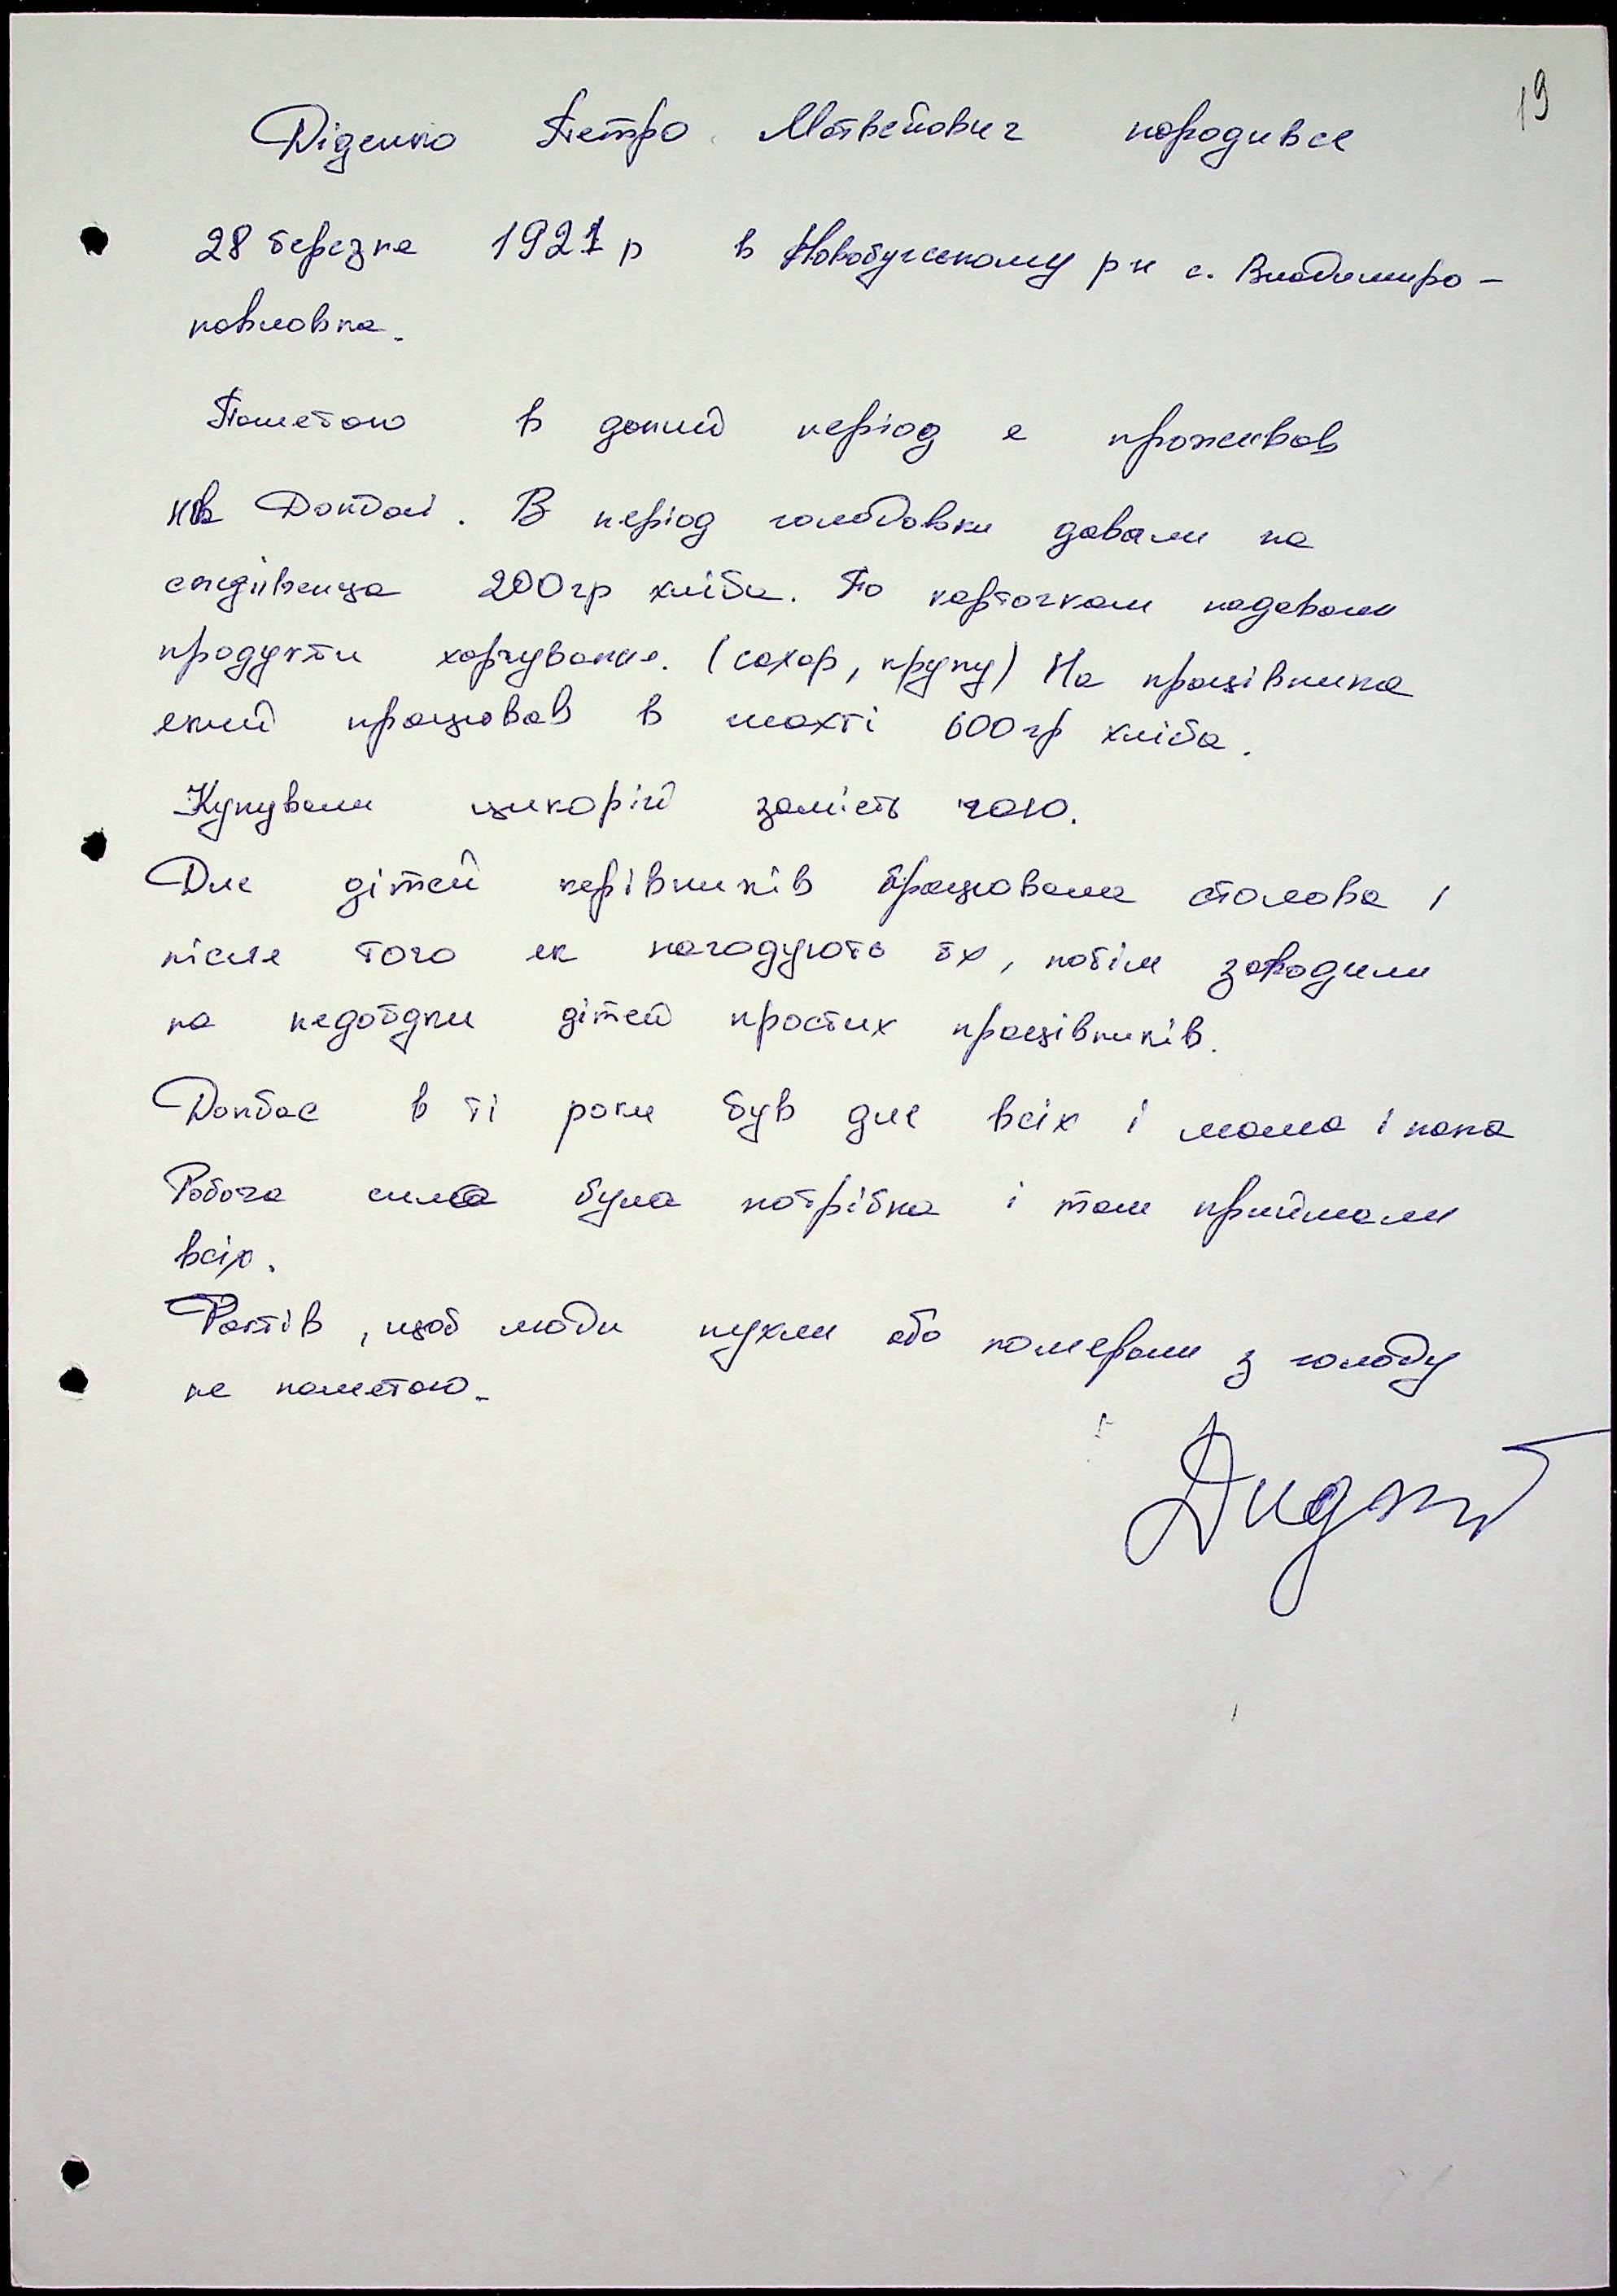 19
Діденко Петро Матвейович народився
28 березня 1921 р в Новобугському рн с. Владимиро-
павловка.
Пам'ятаю в даний період я проживав
на Донбасі. В період голодовки давали на
спедівенца 200 гр хліба. По карточкам надавали
продукти харчування. (сахар, крупу) На працівника
який працював в шахті 600 гр хліба.
Купували цикорій замість чаю.
Для дітей керівників працювала столова і
після того як нагодують їх, потім заводили
на недоїдки дітей простих працівників.
Донбас в ті роки був для всіх і мама і папа
Робоча сила була потрібна і там приймали
всіх.
Фактів, щоб люди пухли або помирали з голоду
не пам'ятаю.